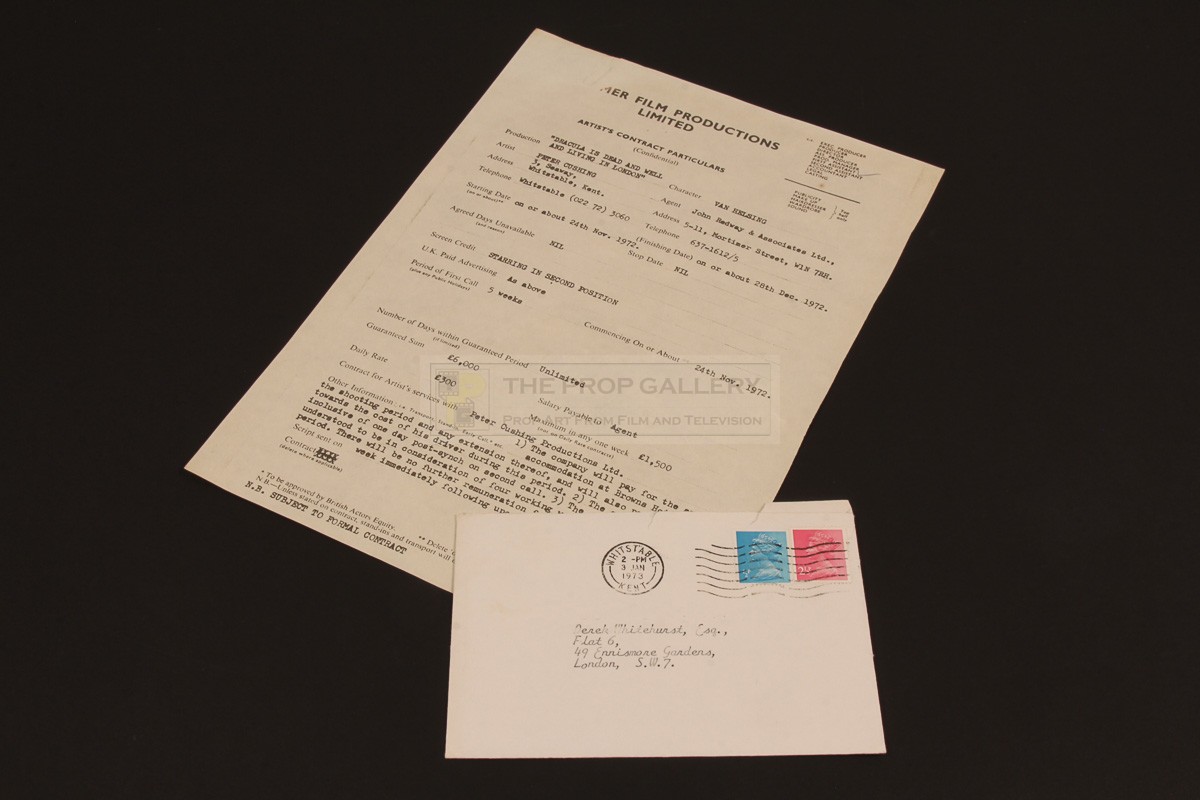 MER FILM PRODUCTIONS
LIMITED
ARTIST'S CONTRACT PARTICULARS
(Confidential)
EXEC. PRODUCER
PRODUCER
DIRECTOR
PUBLICITY
MAKE UP
HAIRDRESSER
WARDROBE
SOUND
Production "DRACULA IS DEAD AND WELL
AND LIVING IN LONDON"
Artist PETER CUSHING Character VAN HELSING
Address 3, Seaway, Agent John Redway & Associates Ltd.,
Whitstable, Kent. Address 5-11, Mortimer Street, W1N 7RH.
Telephone Whitstable (022 72) 3060 Telephone 637-1612/3
Starting Date on or about 24th Nov. 1972. (Finishing Date) on or about 28th Dec. 1972.
(on or about)**
Agreed Days Unavailable NIL Stop Date NIL
(and reason)
Screen Credit STARRING IN SECOND POSITION
U.K. Paid Advertising As above
Period of First Call 5 weeks Commencing On or About ** 24th Nov. 1972.
(plus any Public Holidays)
Number of Days within Guaranteed Period Unlimited
(if limited)
Guaranteed Sum £6,000 Salary Payable to Agent
Daily Rate £300 Maximum in any one week £1,500
(not on Daily Rate Contracts)
Contract for Artist's services with Peter Cushing Productions Ltd.
Other Information: i.e. Transport, Stand-in, Early Call, etc. 1) The company will pay for the
accommodation at Browns
the shooting period and any extension thereof, and will also
towards the cost of his driver during this period. 2) The
inclusive of one day post-synch on second call. 3) The
understood to be in consideration of four working
period. There will be no further remuneration
week immediately following
Script sent on
Contract
(delete where applicable)
* To be approved by British Actors Equity. ** Delete
N.B.—Unless stated on contract, stand-ins and transport will
N.B. SUBJECT TO FORMAL CONTRACT
THE PROP GALLERY
PROP ART FROM FILM AND TELEVISION
WHITSTABLE
2 -PM
3 JAN
1973
KENT
Derek Whitehurst, Esq.,
Flat 6,
49 Ennismore Gardens,
London, S.W.7.